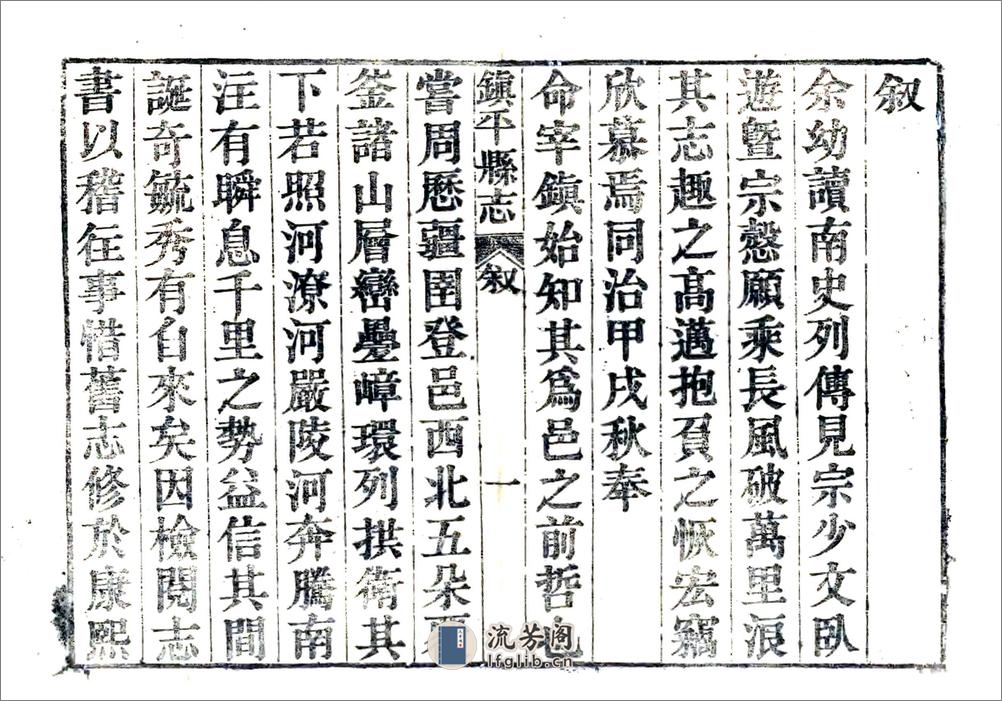 叙
余幼讀南史列傳見宗少文臥
遊暨宗慤願乘長風破萬里浪
其志趣之高邁抱負之恢宏竊
欣慕焉同治甲戌秋奉
命宰鎮始知其爲邑之前哲也
鎮平縣志 叙 一
嘗周歷疆圉登邑西北五朶
釜諸山層巒疊嶂環列拱衛其
下若照河潦河嚴陵河奔騰南
注有瞬息千里之勢益信其間
誕奇毓秀有自來矣因檢閱志
書以稽往事惜舊志修於康熙
流芳阁
lfglib.cn